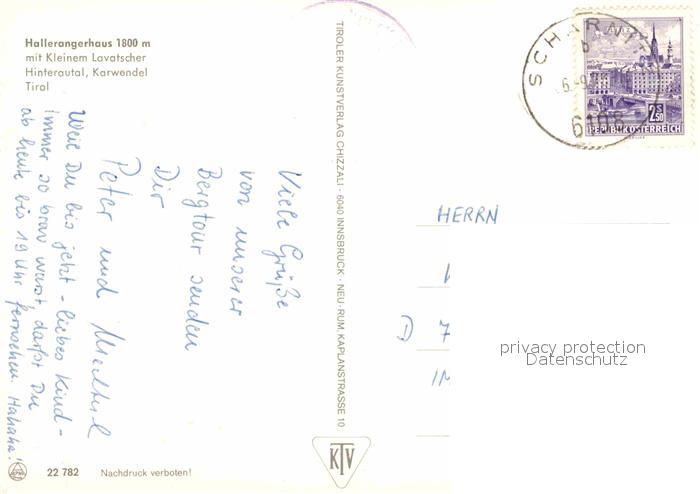 Hallerangerhaus 1800 m
mit Kleinem Lavatscher
Hinterautal, Karwendel
Tirol
Viele Grüße
von unserer
Bergtour senden
Dir
Peter und
Weil Du bis jetzt - liebes Kind -
immer so brav warst, darfst Du
ab heute bis 19 Uhr fernsehen. Hahaha!
22 782 Nachdruck verboten!
TIROLER KUNSTVERLAG CHIZZALI · 6040 INNSBRUCK · NEU-RUM, KAPLANSTRASSE 10
KTV
SCHARNI
b
6108
2S50
REPUBLIK ÖSTERREICH
HERRN
D 7
privacy protection
Datenschutz